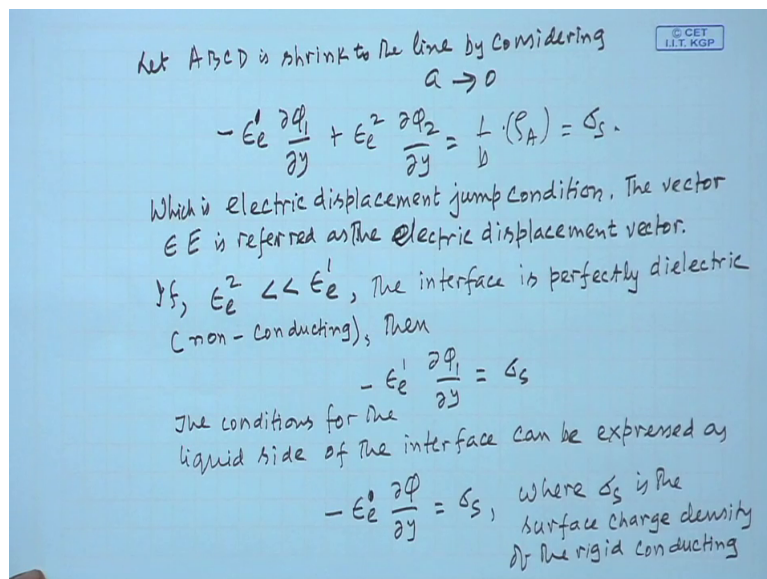 © CET
I.I.T. KGP
Let ABCD is shrink to the line by considering
a → 0
- ϵₑ¹ ∂φ₁/∂y + ϵₑ² ∂φ₂/∂y = 1/b · (ρ_A) = σ_s.
Which is electric displacement jump condition. The vector
ϵ E is referred as the electric displacement vector.
If, ϵₑ² << ϵₑ¹, The interface is perfectly dielectric
(non-conducting), Then
- ϵₑ¹ ∂φ₁/∂y = σ_s
The conditions for the
liquid side of the interface can be expressed as
- ϵₑ ∂φ/∂y = σ_s, where σ_s is the
surface charge density
of the rigid conducting